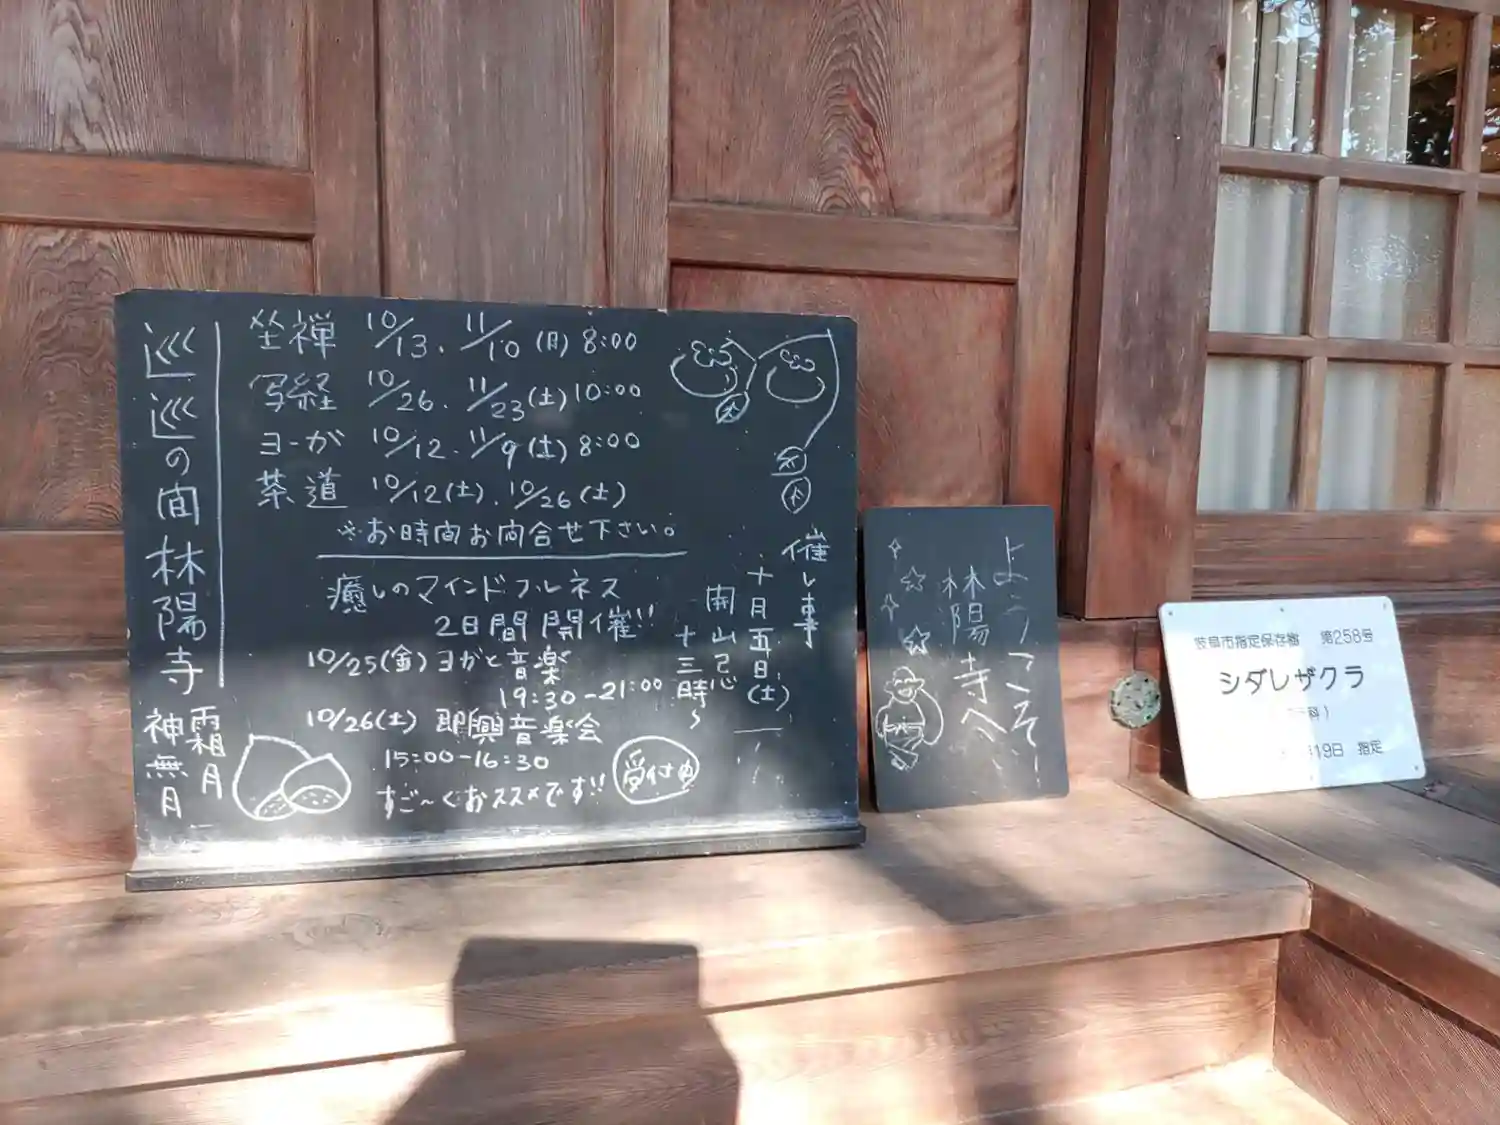 巡巡の間 林陽寺
霜月
神無月
坐禅 10/13. 11/10 (日) 8:00
写経 10/26. 11/23(土) 10:00
ヨーガ 10/12. 11/9(土) 8:00
茶道 10/12(土). 10/26(土)
※お時間お問合せ下さい。
癒しのマインドフルネス
2日間開催!!
10/25(金) ヨガと音楽
19:30-21:00
10/26(土) 即興音楽会
15:00-16:30
すご〜くおススメです!!
受付中
催し事
十月五日(土)
開山忌
十三時〜
ようこそ!
林陽寺へ
岐阜市指定保存樹 第258号
シダレザクラ
科)
19日 指定